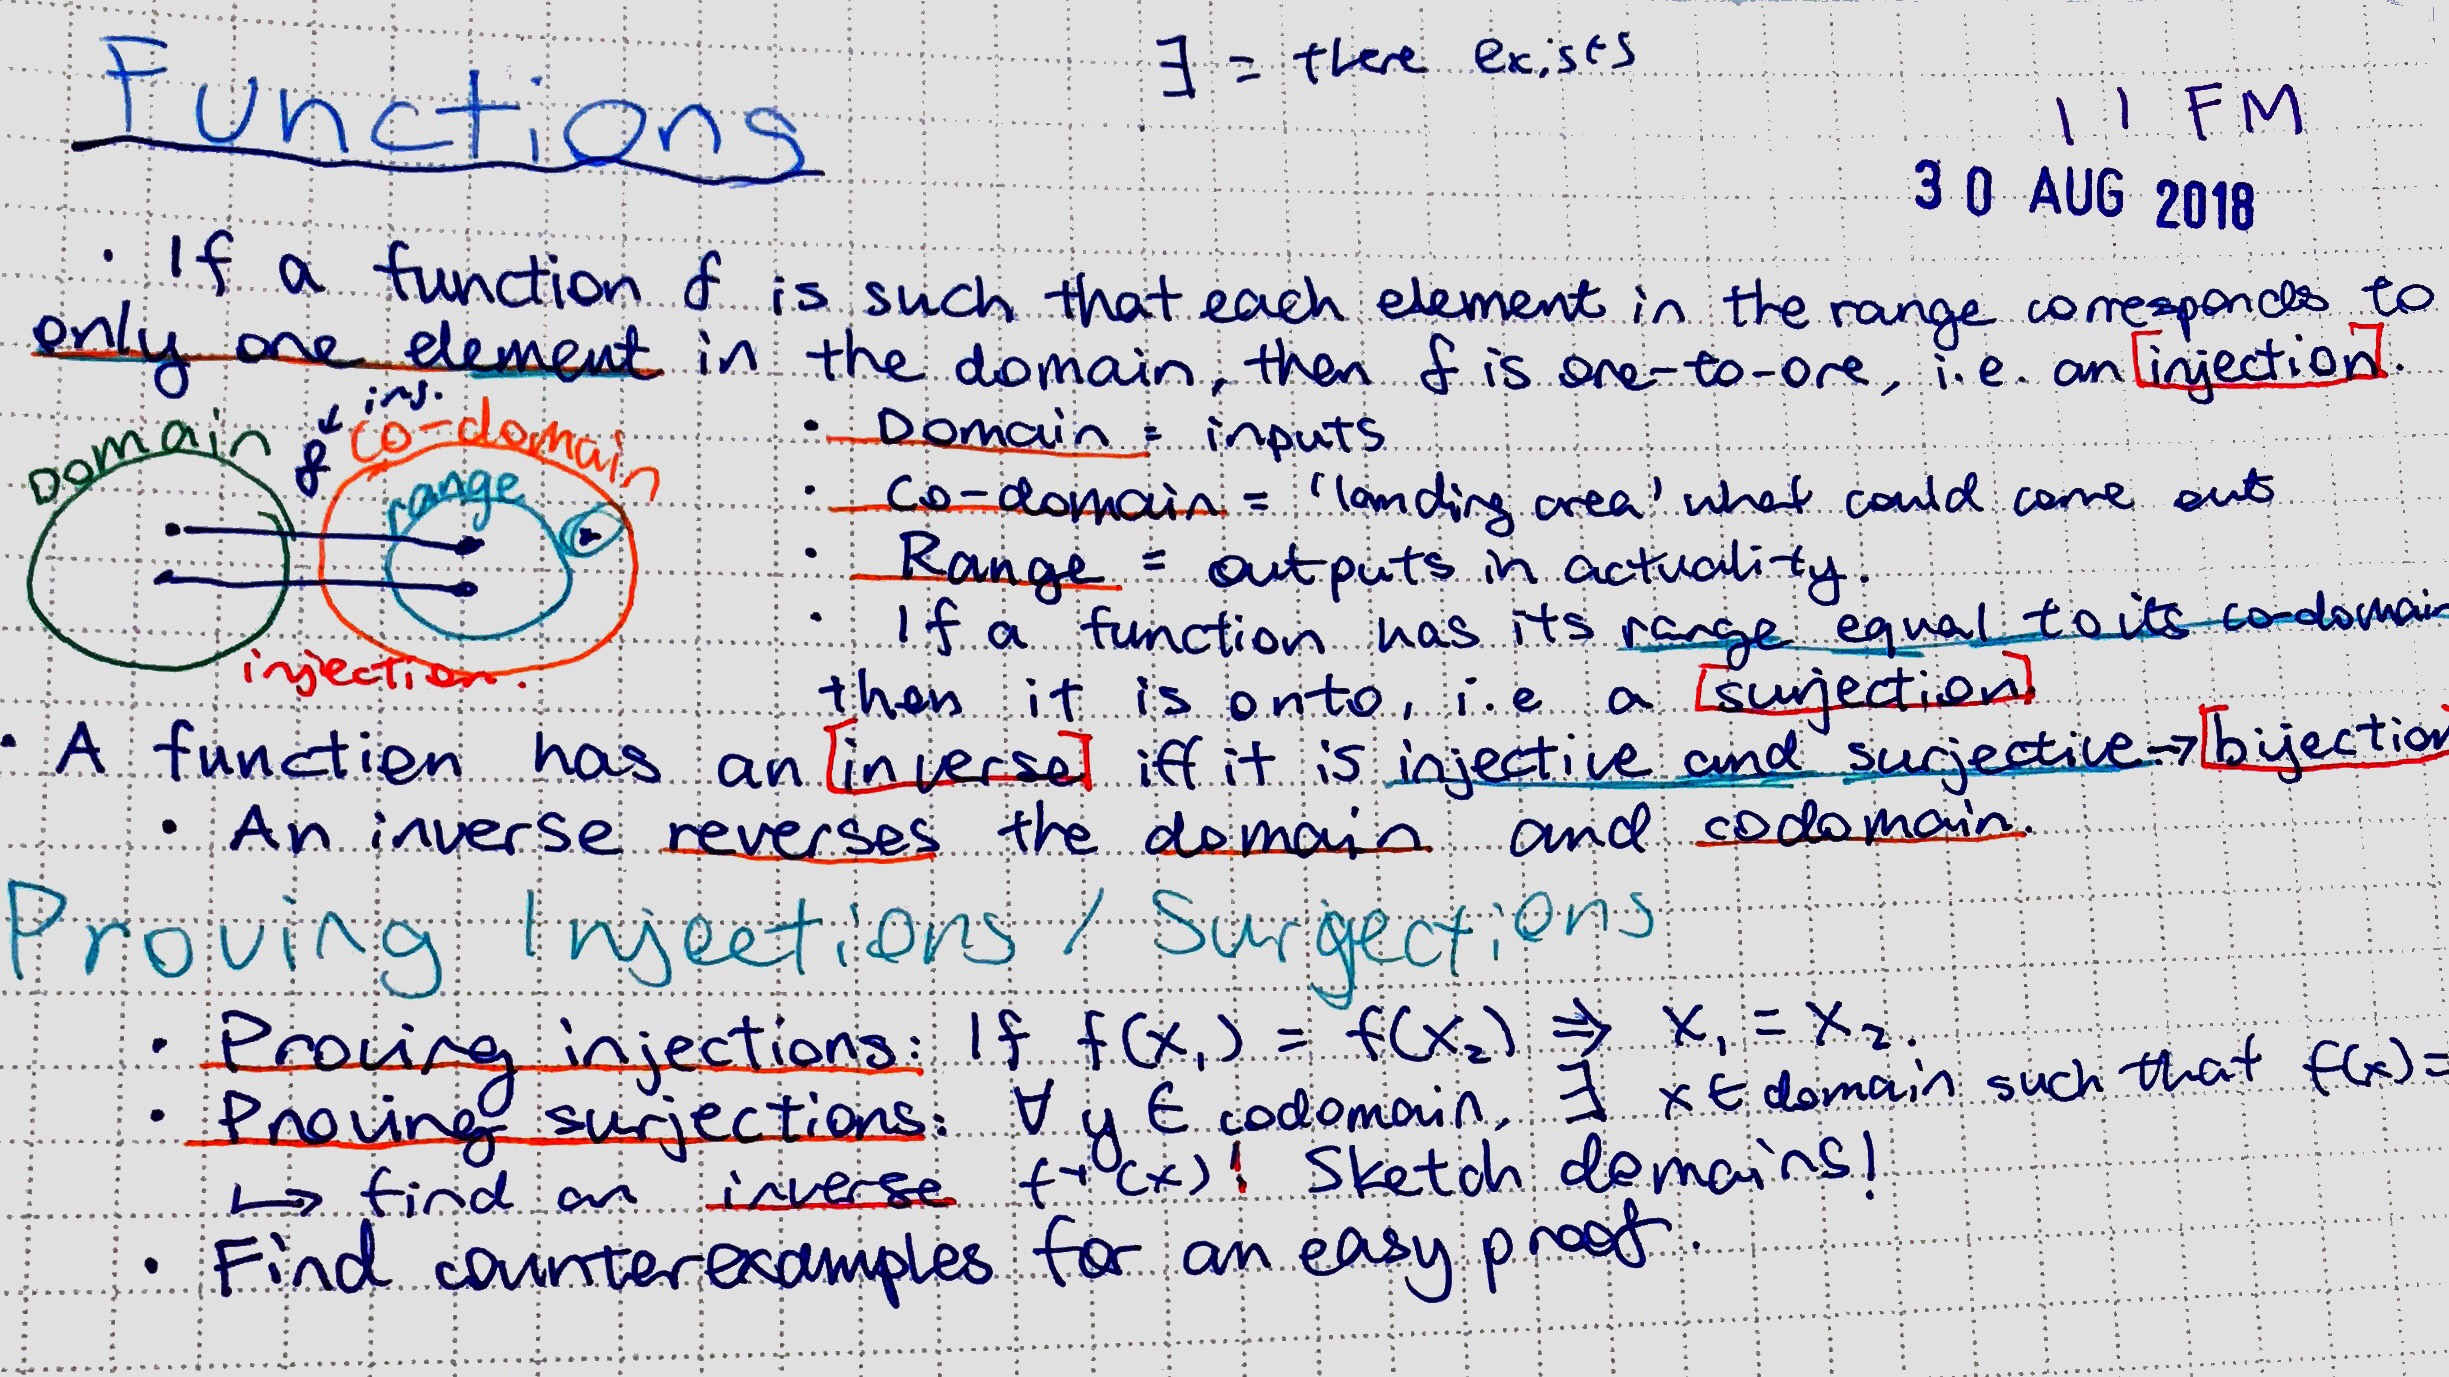 Functions
∃ = there exists
11 FM
30 AUG 2018
· If a function f is such that each element in the range corresponds to
only one element in the domain, then f is one-to-one, i.e. an [injection].
inj.
↓
f
Domain
co-domain
range
injection.
· Domain = inputs
· Co-domain = 'landing area' what could come out
· Range = outputs in actuality.
· If a function has its range equal to its co-domain
then it is onto, i.e a [surjection]
· A function has an [inverse] iff it is injective and surjective → [bijection]
· An inverse reverses the domain and codomain.
Proving Injections / Surjections
· Proving injections: If f(x₁) = f(x₂) ⇒ x₁ = x₂.
· Proving surjections: ∀ y ∈ codomain, ∃ x ∈ domain such that f(x)=
↳ find an inverse f⁻¹(x)! Sketch domains!
· Find counterexamples for an easy proof.